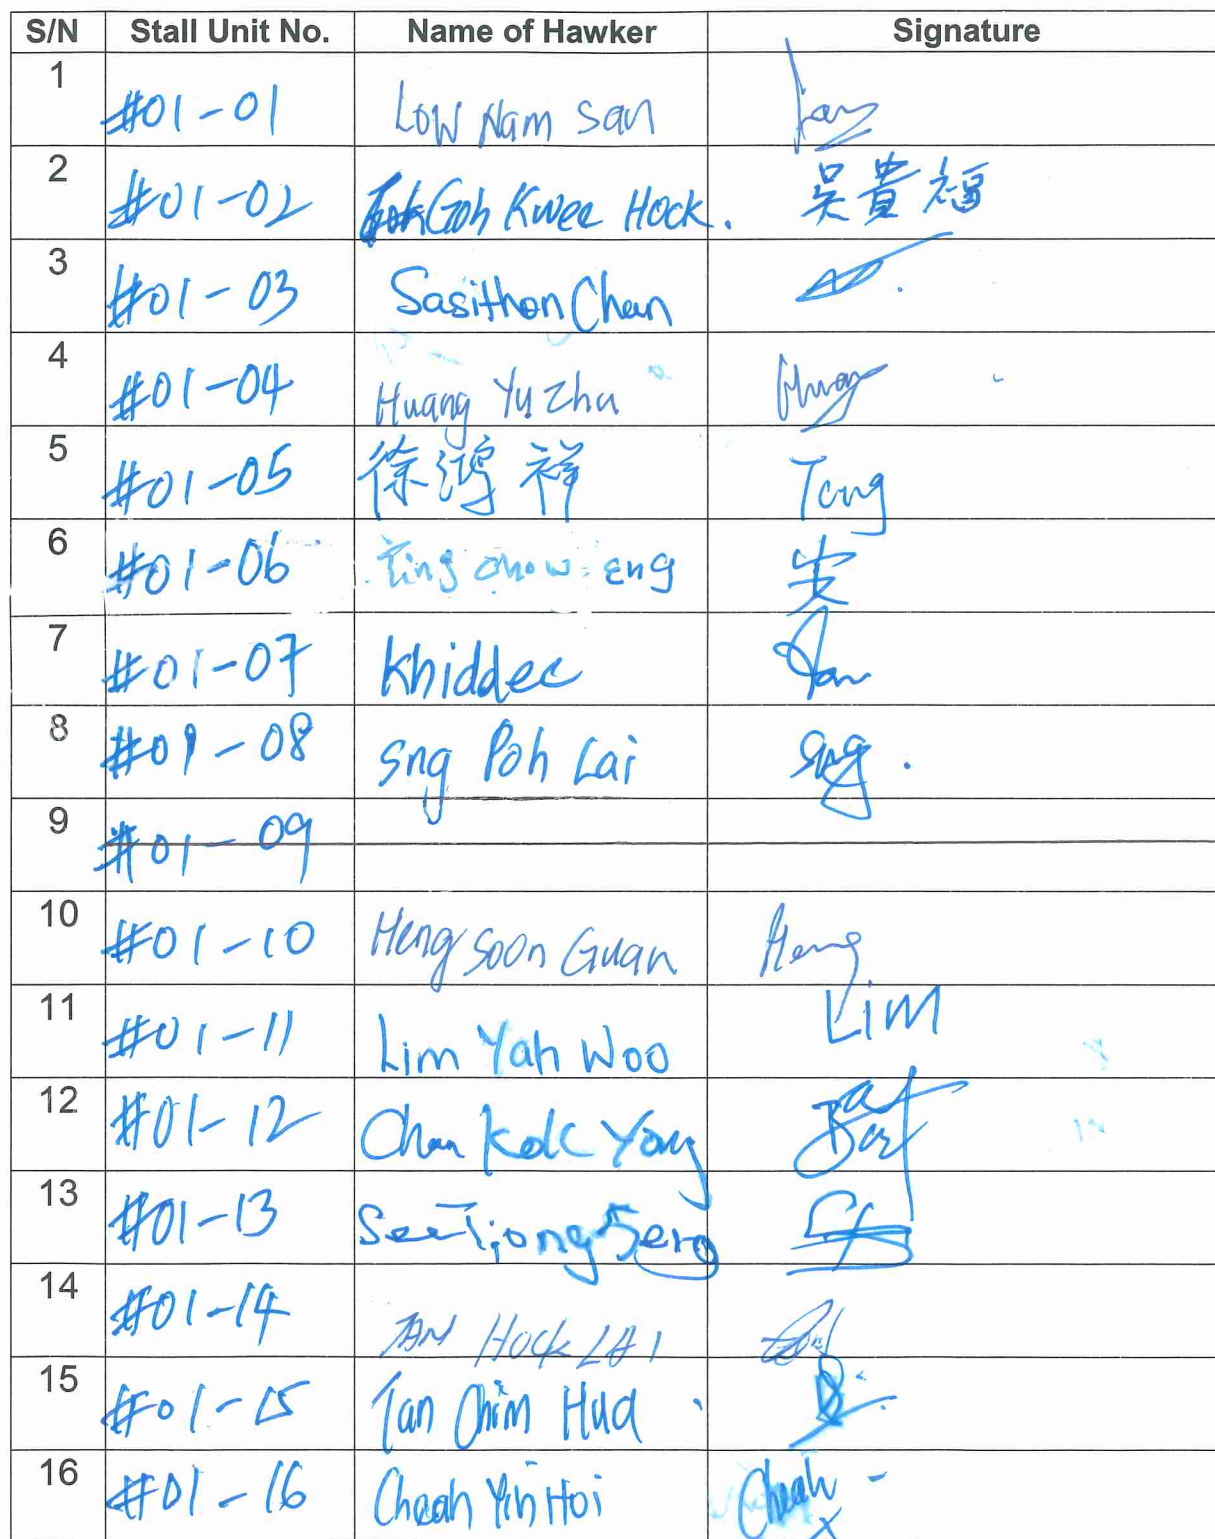 S/N Stall Unit No. Name of Hawker Signature
1 #01-01 Low Nam San
2 #01-02 Goh Kwee Hock. 吴貴福
3 #01-03 Sasithon Chan
4 #01-04 Huang Yu Zhu
5 #01-05 徐鸿祥 Tong
6 #01-06 Ting Chow Eng
7 #01-07 Khiddec
8 #01-08 Sng Poh Lai Sng
9 #01-09
10 #01-10 Heng Soon Guan Heng
11 #01-11 Lim Yah Woo Lim
12 #01-12 Chan Kok Yong
13 #01-13 See Tiong Seng
14 #01-14 TAN HOCK LAI
15 #01-15 Tan Chim Hua
16 #01-16 Cheah Yin Hoi Cheah